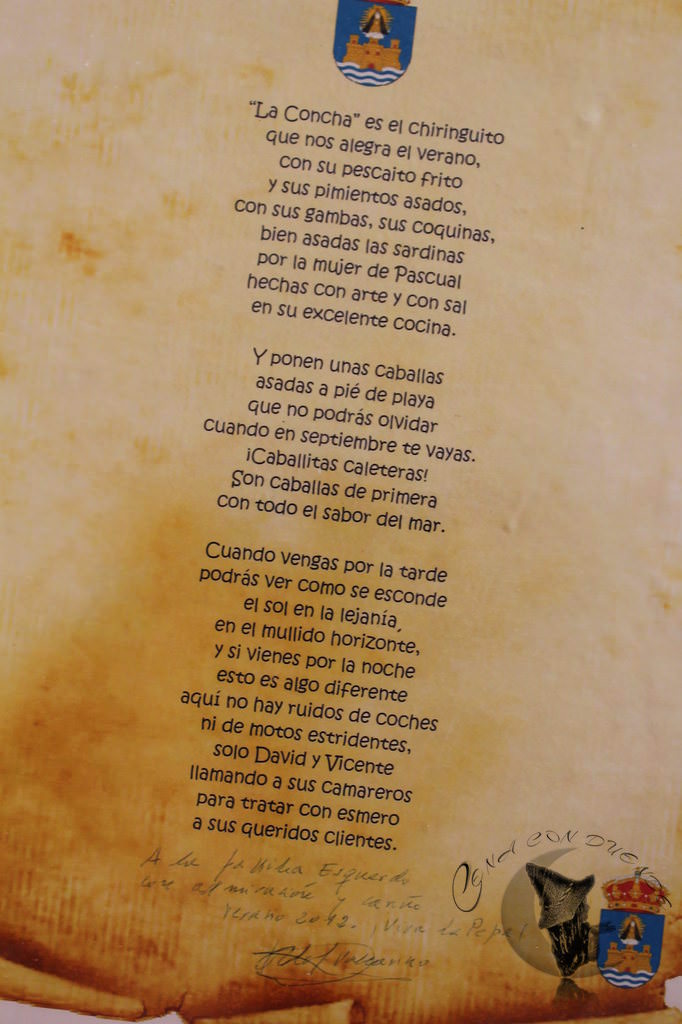 “La Concha” es el chiringuito
que nos alegra el verano,
con su pescaito frito
y sus pimientos asados,
con sus gambas, sus coquinas,
bien asadas las sardinas
por la mujer de Pascual
hechas con arte y con sal
en su excelente cocina.
Y ponen unas caballas
asadas a pié de playa
que no podrás olvidar
cuando en septiembre te vayas.
¡Caballitas caleteras!
Son caballas de primera
con todo el sabor del mar.
Cuando vengas por la tarde
podrás ver como se esconde
el sol en la lejanía,
en el mullido horizonte,
y si vienes por la noche
esto es algo diferente
aquí no hay ruidos de coches
ni de motos estridentes,
solo David y Vicente
llamando a sus camareros
para tratar con esmero
a sus queridos clientes.
A la familia Esquerdo
con admiración y cariño
Verano 2012. ¡Viva La Pepa!
CON DUE